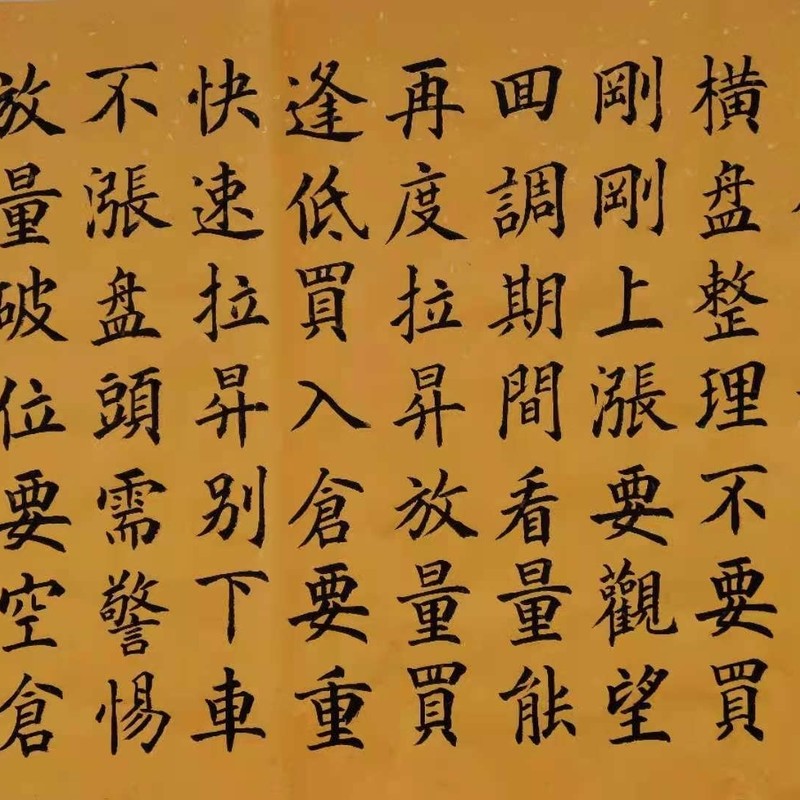 橫盘整理不要買
剛剛上漲要觀望
回調期間看量能
再度拉昇放量買
逢低買入倉要重
快速拉昇别下車
不漲盘頭需警惕
放量破位要空倉